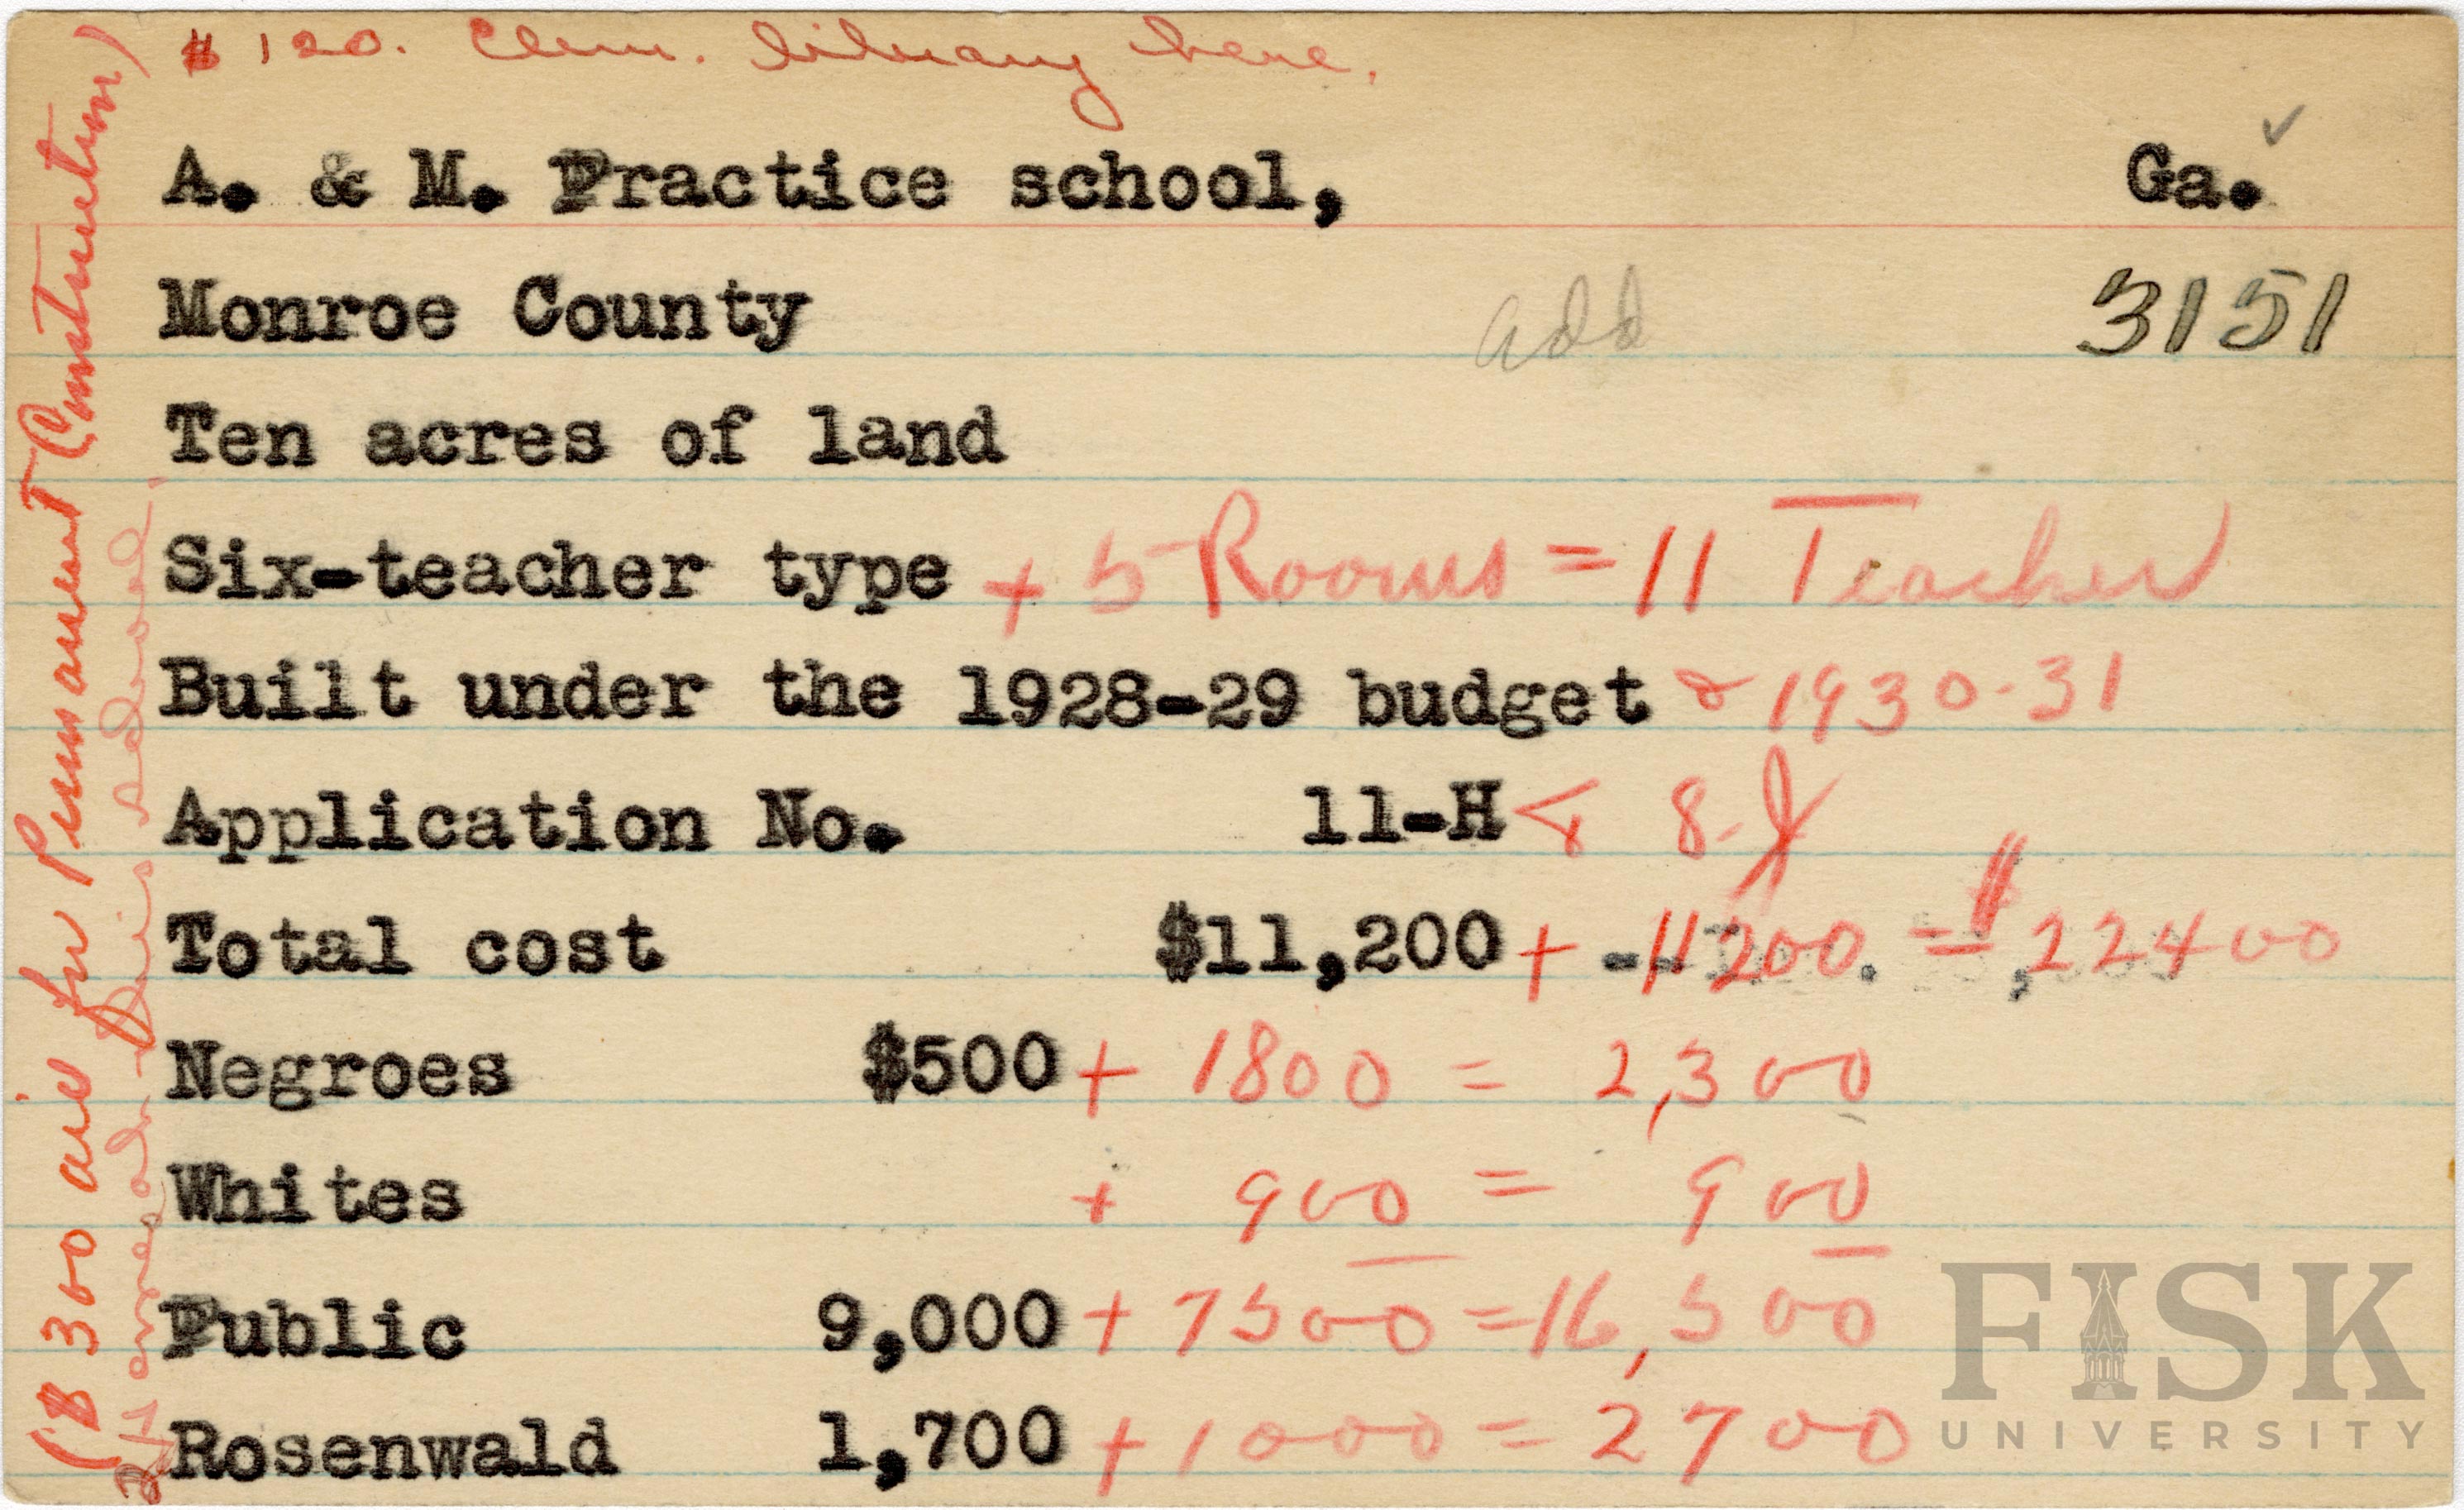 $120. Elem. library here.
A. & M. Practice school, Ga. ✓
Monroe County add 3151
Ten acres of land
Six-teacher type + 5 Rooms = 11 Teacher
Built under the 1928-29 budget & 1930-31
Application No. 11-H & 8-J
Total cost $11,200 + 11200. = $22400
Negroes $500 + 1800 = 2,300
Whites + 900 = 900
Public 9,000 + 7500 = 16,500
Rosenwald 1,700 + 1000 = 2700
($300 aid for Permanent Construction)
this school.
FISK
UNIVERSITY